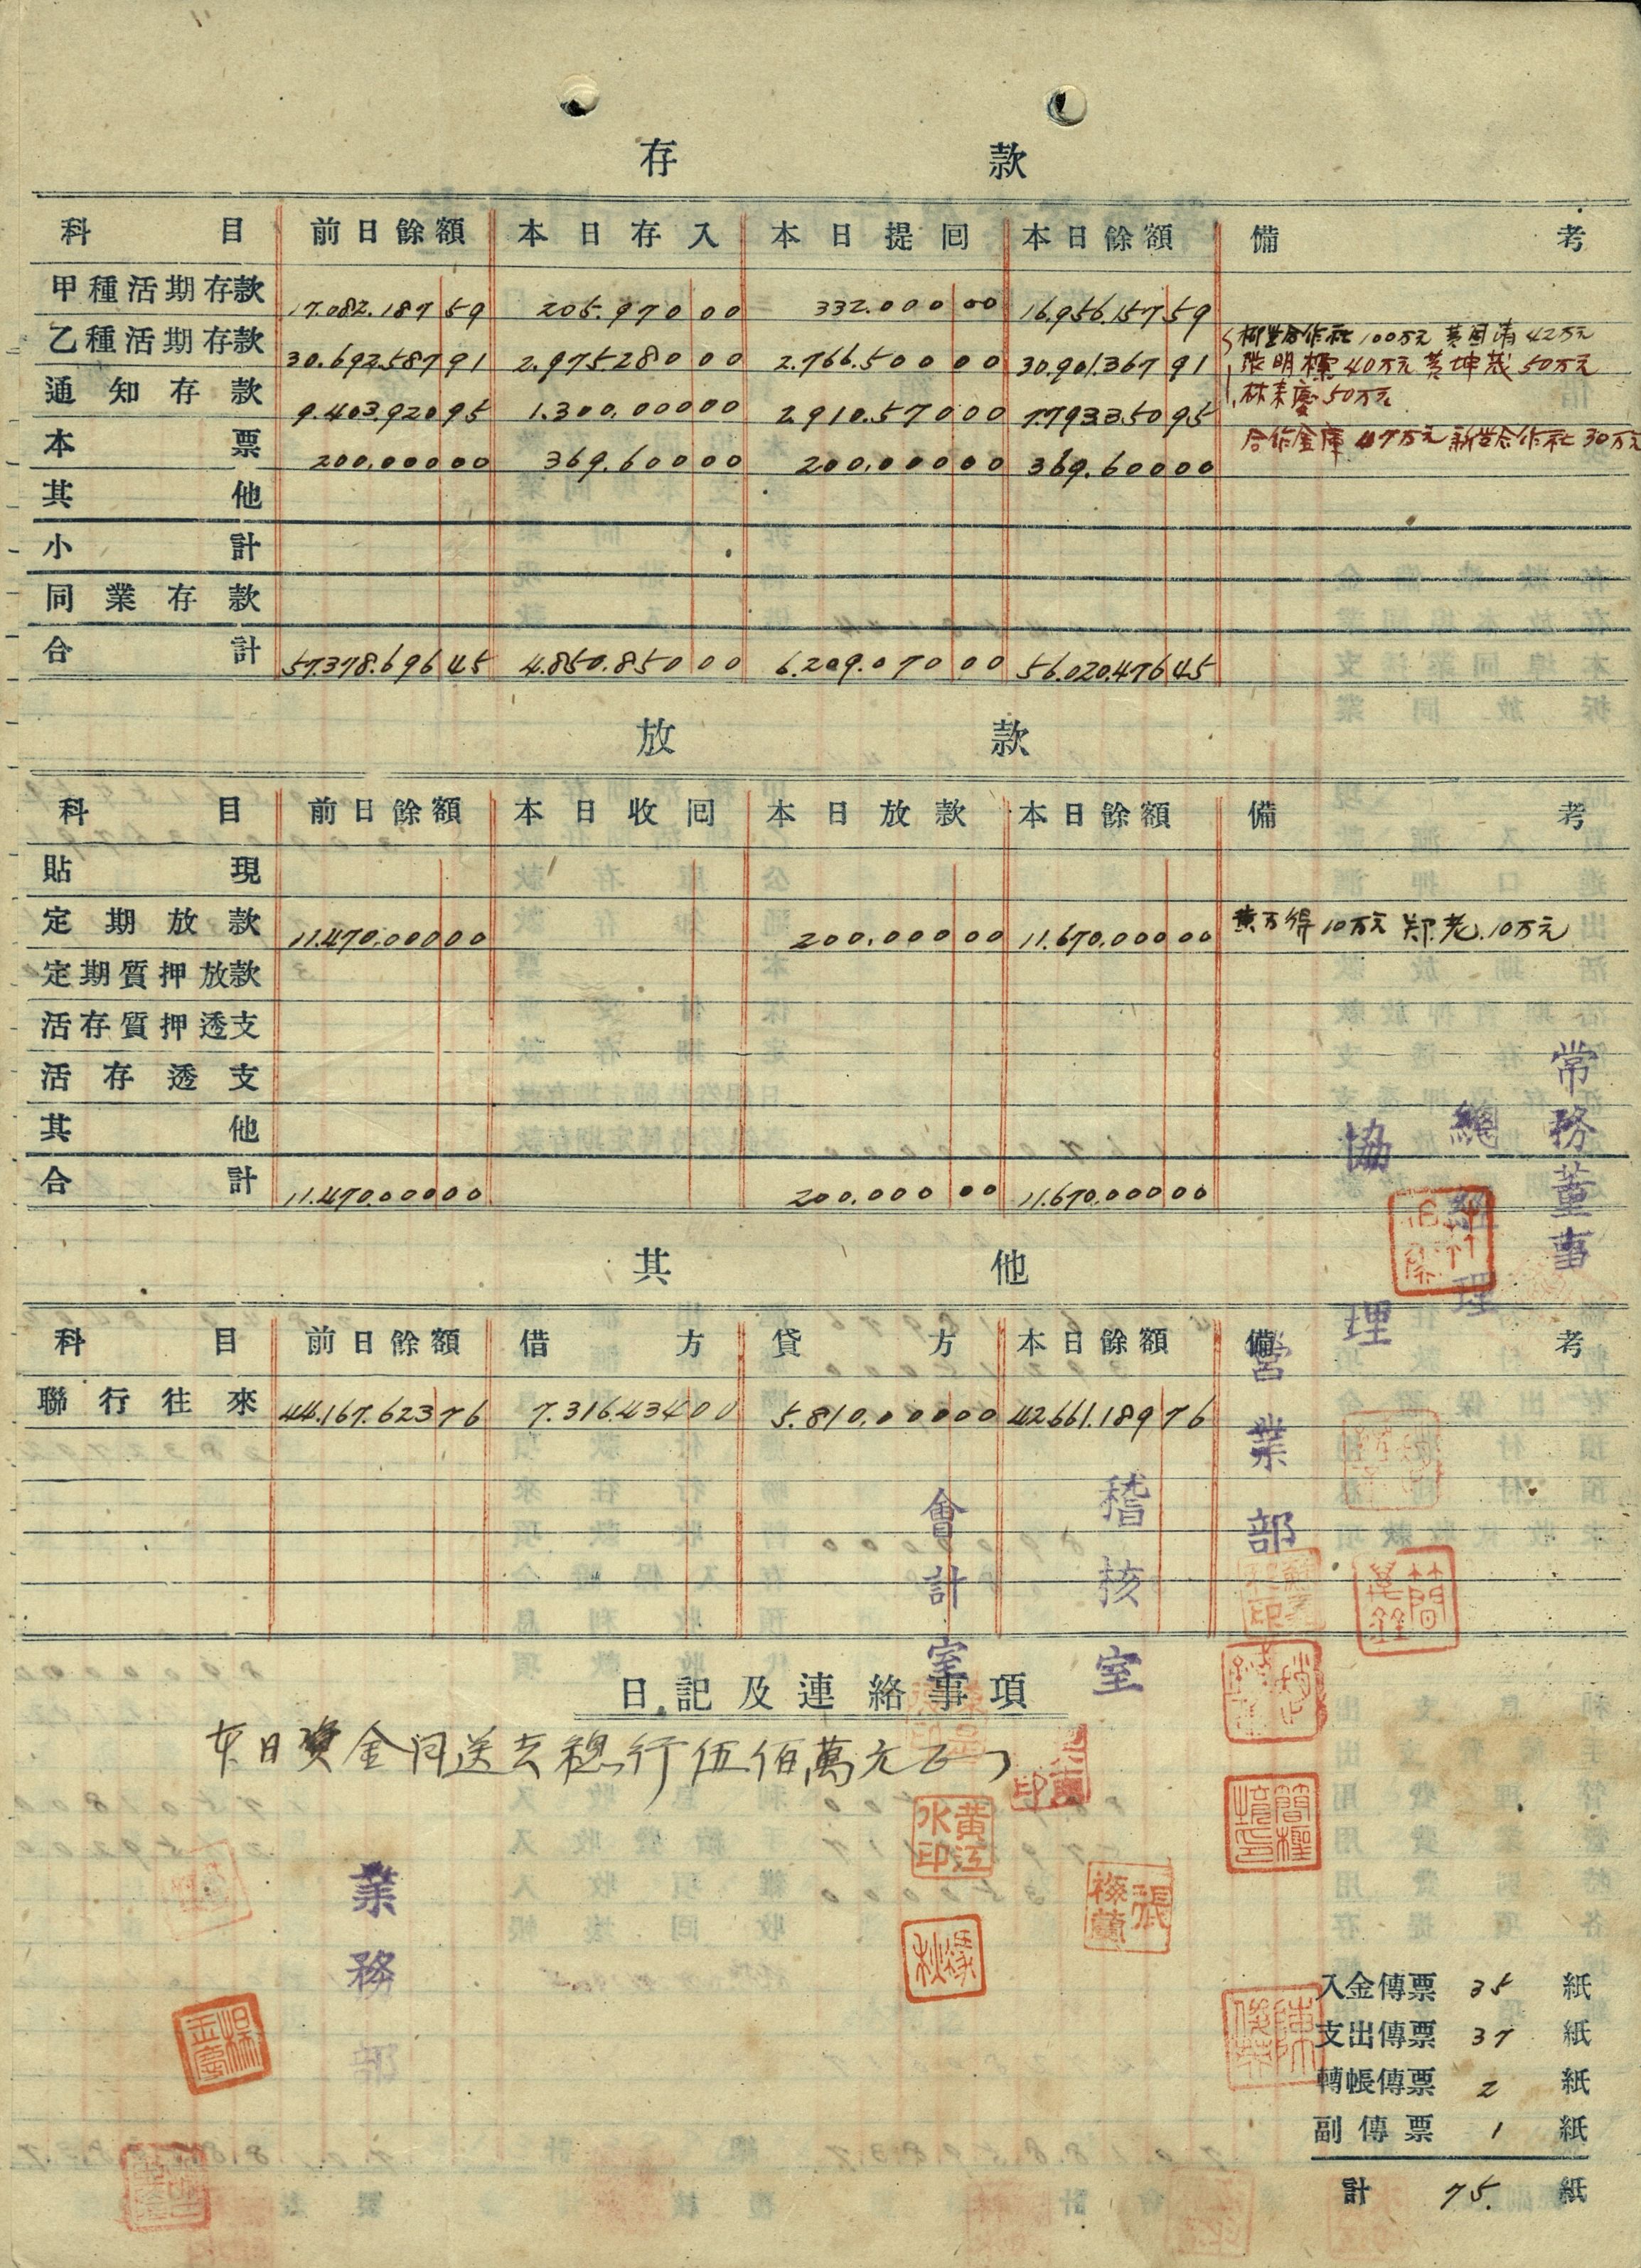 存款
科目 前日餘額 本日存入 本日提囘 本日餘額 備考
甲種活期存款 17.082.187 59 205.970 00 332.000 00 16.956.157 59
乙種活期存款 30.692.587 91 2.975.280 00 2.766.500 00 30.901.367 91
合作社 100万元 黃 42万元
明標 40万元 黃坤茂 50万元
通知存款 9.403.920 95 1.300.000 00 2.910.570 00 7.793.350 95
林 慶 50万元
本票 200.000 00 369.600 00 200.000 00 369.600 00
合作金庫 47万元 新營合作社 30万元
其他
小計
同業存款
合計 57.378.696 45 4.850.850 00 6.209.070 00 56.020.476 45
放款
科目 前日餘額 本日收囘 本日放款 本日餘額 備考
貼現
定期放款 11.470.000 00 200.000 00 11.670.000 00 黃万得 10万元 郑老 10万元
定期質押放款
活存質押透支
活存透支
其他
合計 11.470.000 00 200.000 00 11.670.000 00
常務董事
總經理
協理
其他
科目 前日餘額 借方 貸方 本日餘額 備考
聯行往來 44.167.623 76 7.316.434 00 5.810.000 00 42.661.189 76
營業部
稽核室
會計室
日記及連絡事項
本日資金同送去總行伍佰萬元正
黃江水印
簡萬銓
張梅蘭
業務部
入金傳票 35 紙
支出傳票 37 紙
轉帳傳票 2 紙
副傳票 1 紙
計 75. 紙